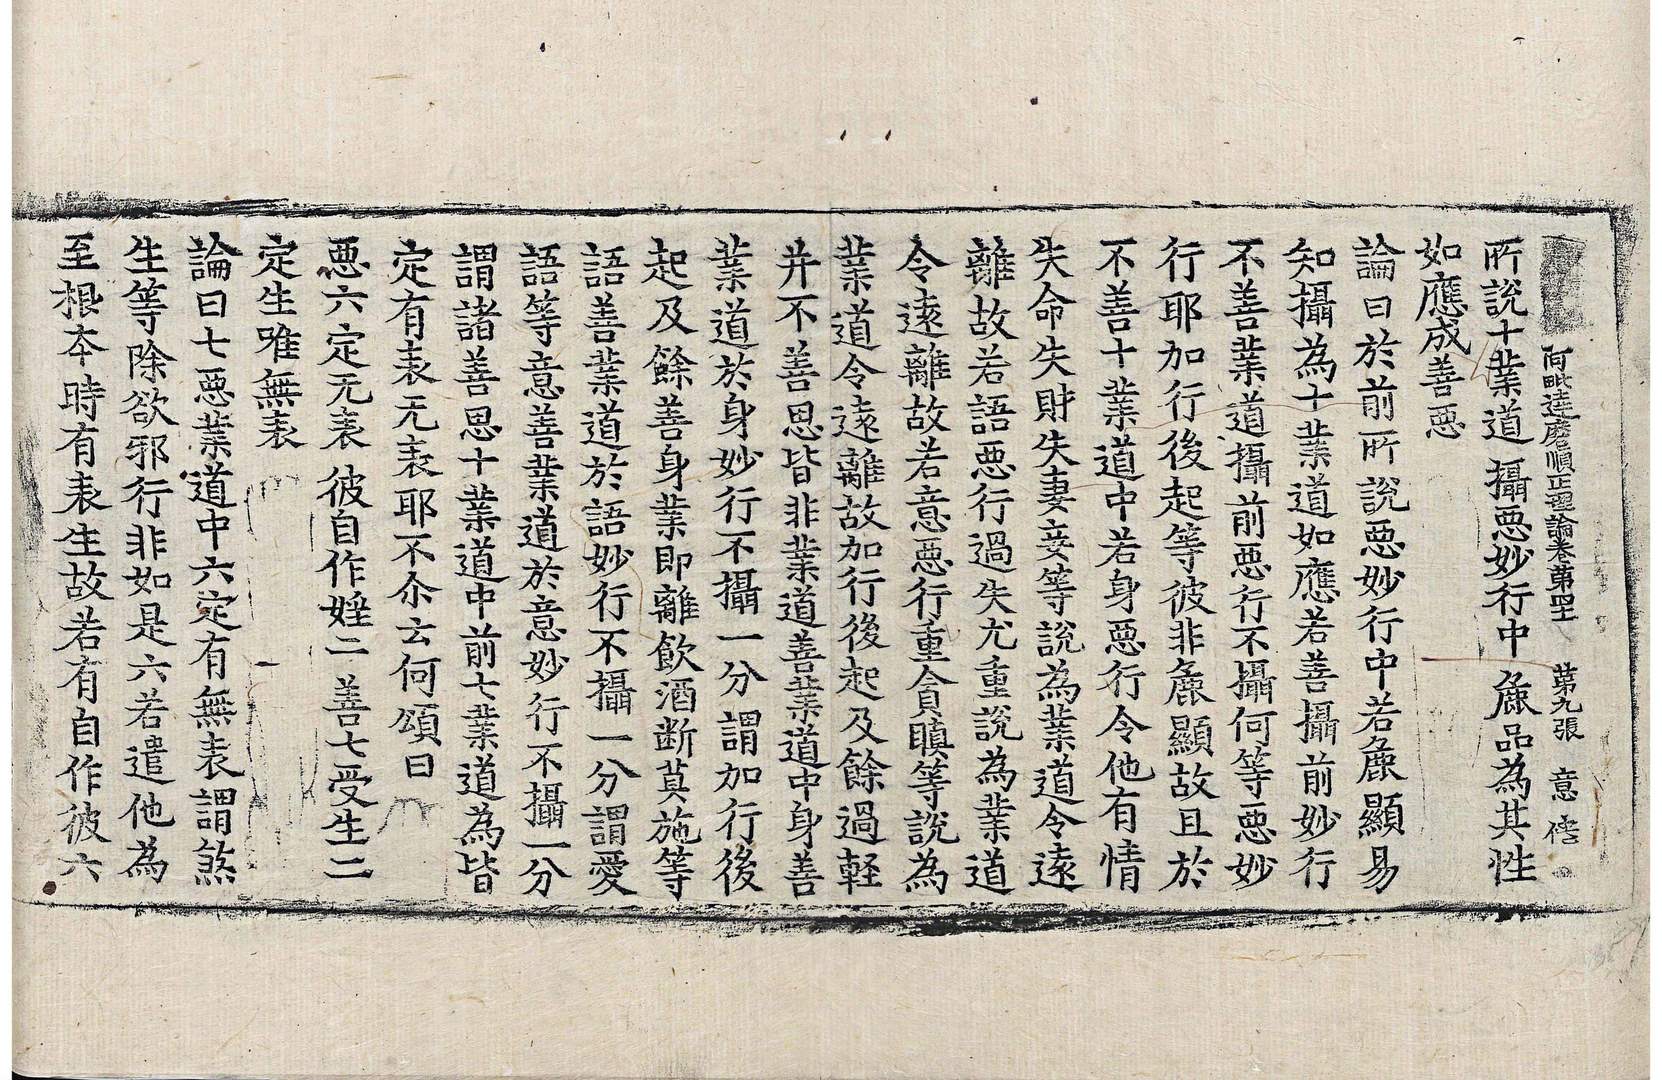 阿毗達磨順正理論卷第四十一 第九張 意
所說十業道 攝惡妙行中 麁品為其性
如應成善惡
論曰於前所說惡妙行中若麁顯易
知攝為十業道如應若善攝前妙行
不善業道攝前惡行不攝何等惡妙
行耶加行後起等彼非麁顯故且於
不善十業道中若身惡行令他有情
失命失財失妻妾等說為業道令遠
離故若語惡行過失尤重說為業道
令遠離故若意惡行重貪瞋等說為
業道令遠離故加行後起及餘過軽
并不善思皆非業道善業道中身善
業道於身妙行不攝一分謂加行後
起及餘善身業即離飲酒断莫施等
語善業道於語妙行不攝一分謂愛
語等意善業道於意妙行不攝一分
謂諸善思十業道中前七業道為皆
定有表无表耶不尒云何頌曰
惡六定无表 彼自作婬二 善七受生二
定生唯無表
論曰七惡業道中六定有無表謂煞
生等除欲邪行非如是六若遣他為
至根本時有表生故若有自作彼六